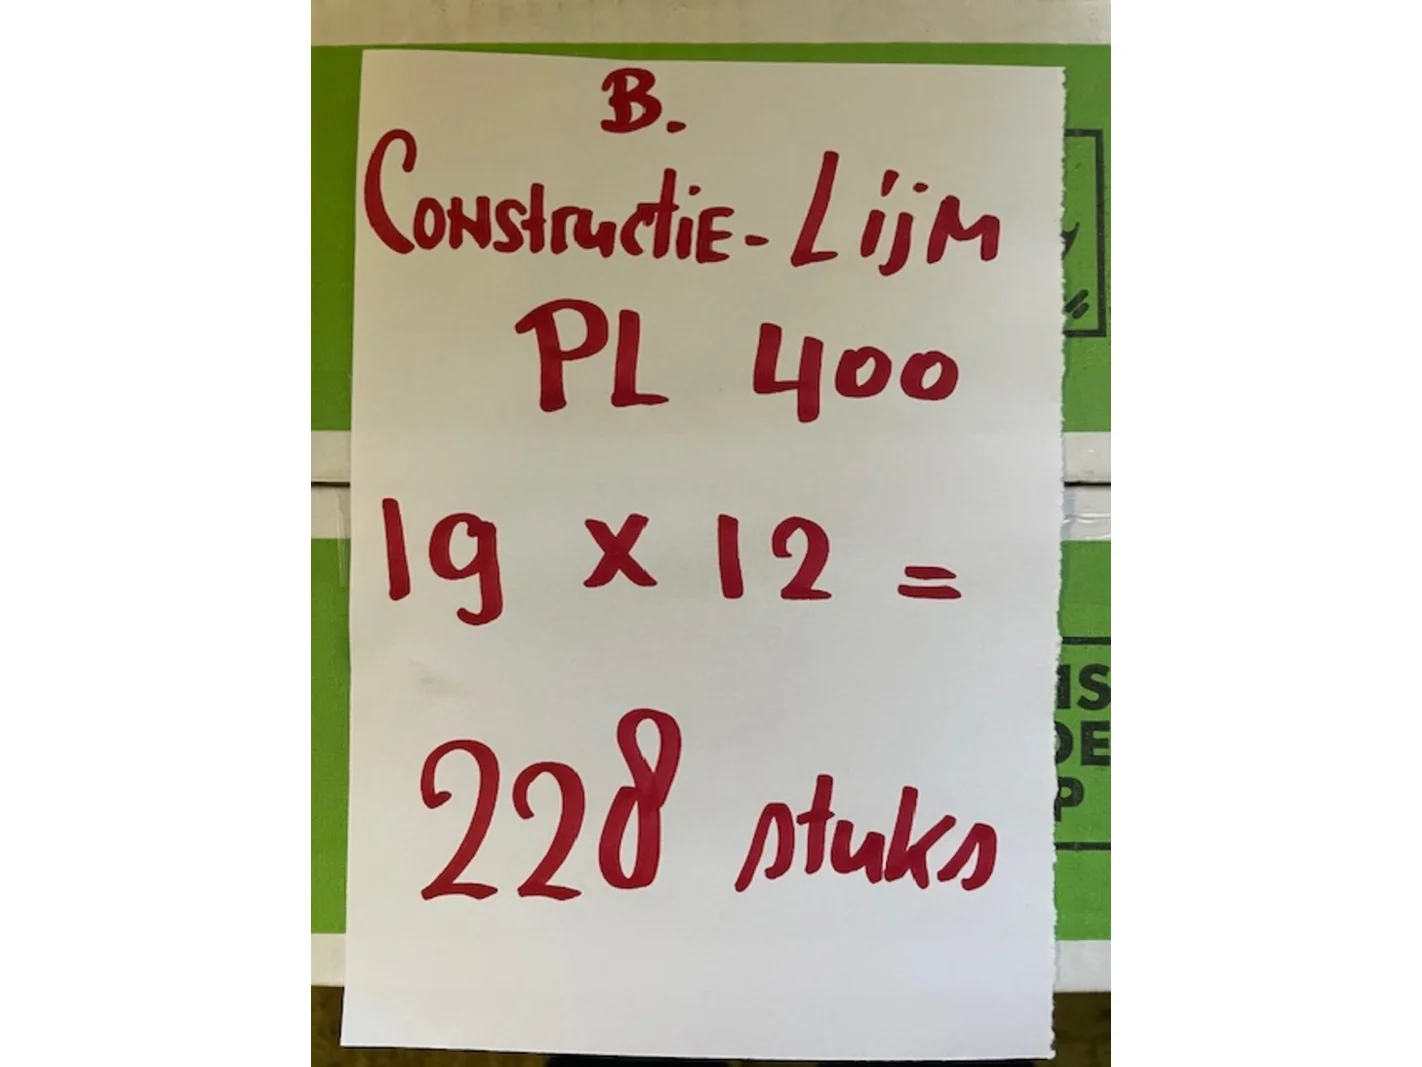 B.
Constructie-Lijm
PL 400
19 x 12 =
228 stuks
IS
DE
P